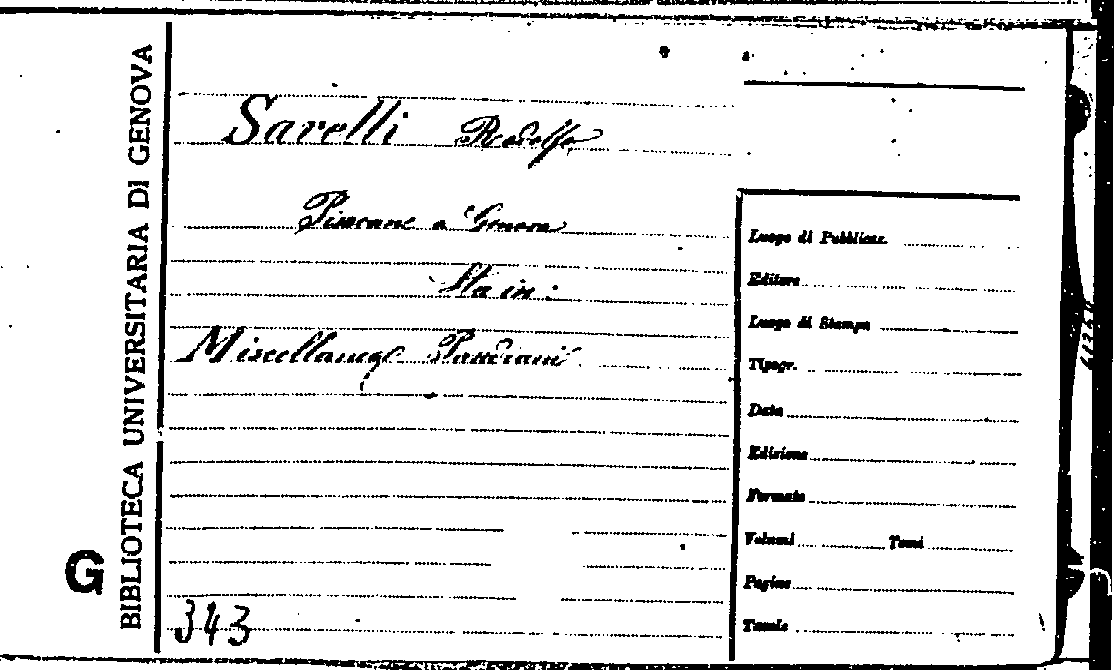 BIBLIOTECA UNIVERSITARIA DI GENOVA
G
Savelli Rodolfo
Pisacane a Genova
Sta in:
Miscellanea
343
Luogo di Pubblicaz.
Editore
Luogo di Stampa
Tipogr.
Data
Edizione
Formato
Volumi Tomi
Pagine
Tavole